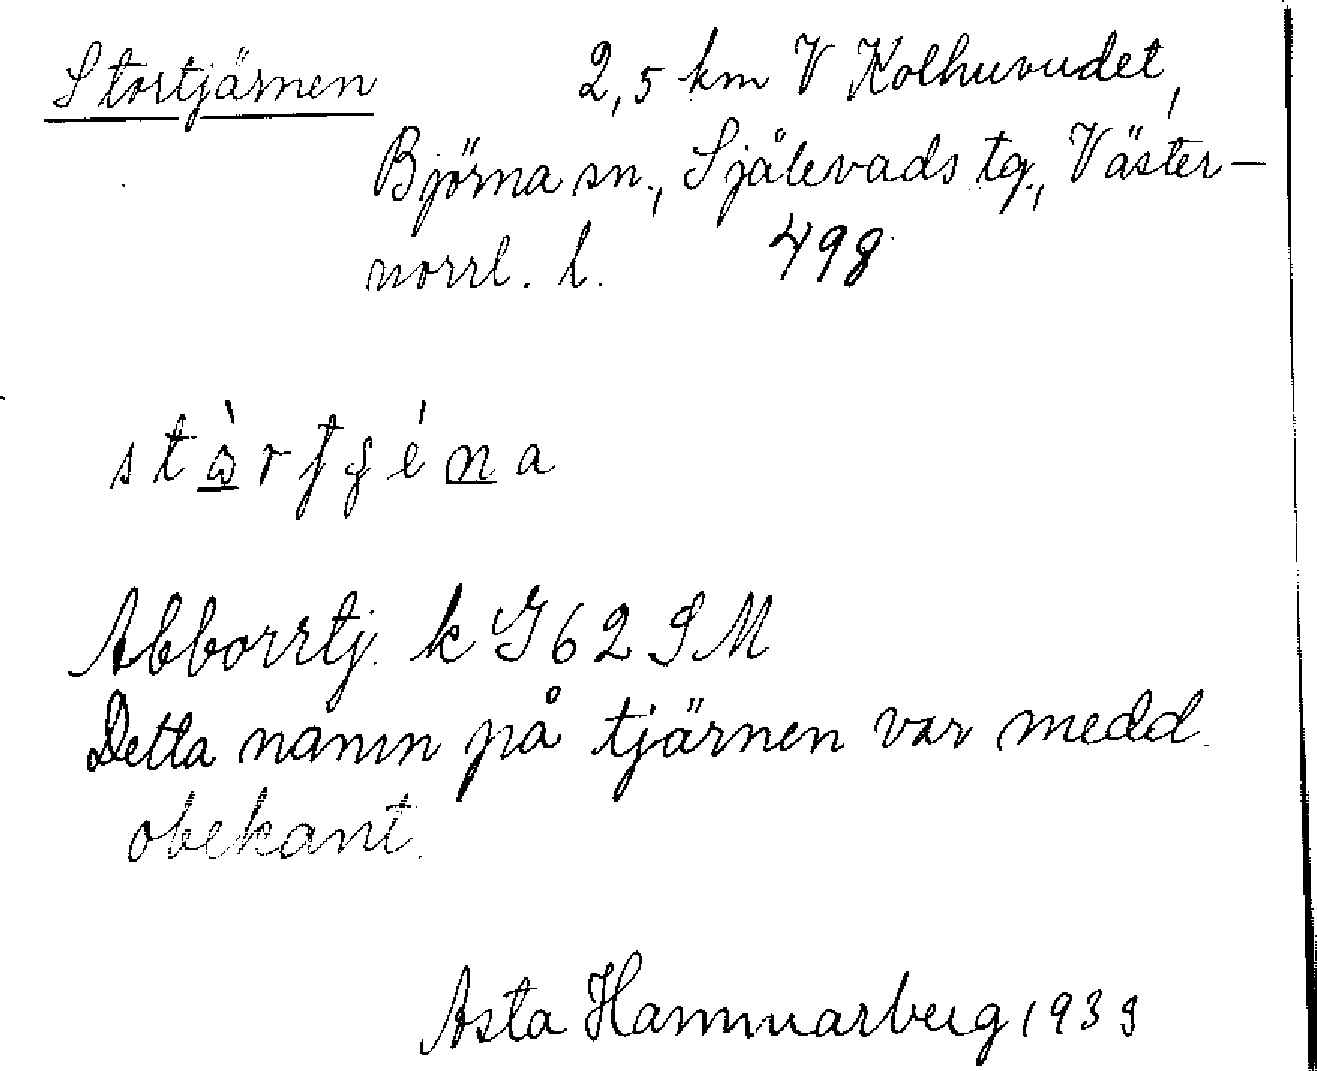 Stortjärnen 2,5 km V Kolhuvudet,
Björna sn., Själevads tg., Väster-
norrl. l. 498
Abborrtj. k G 62 S M
Detta namn på tjärnen var medd.
obekant.
Asta Hammarberg 1939